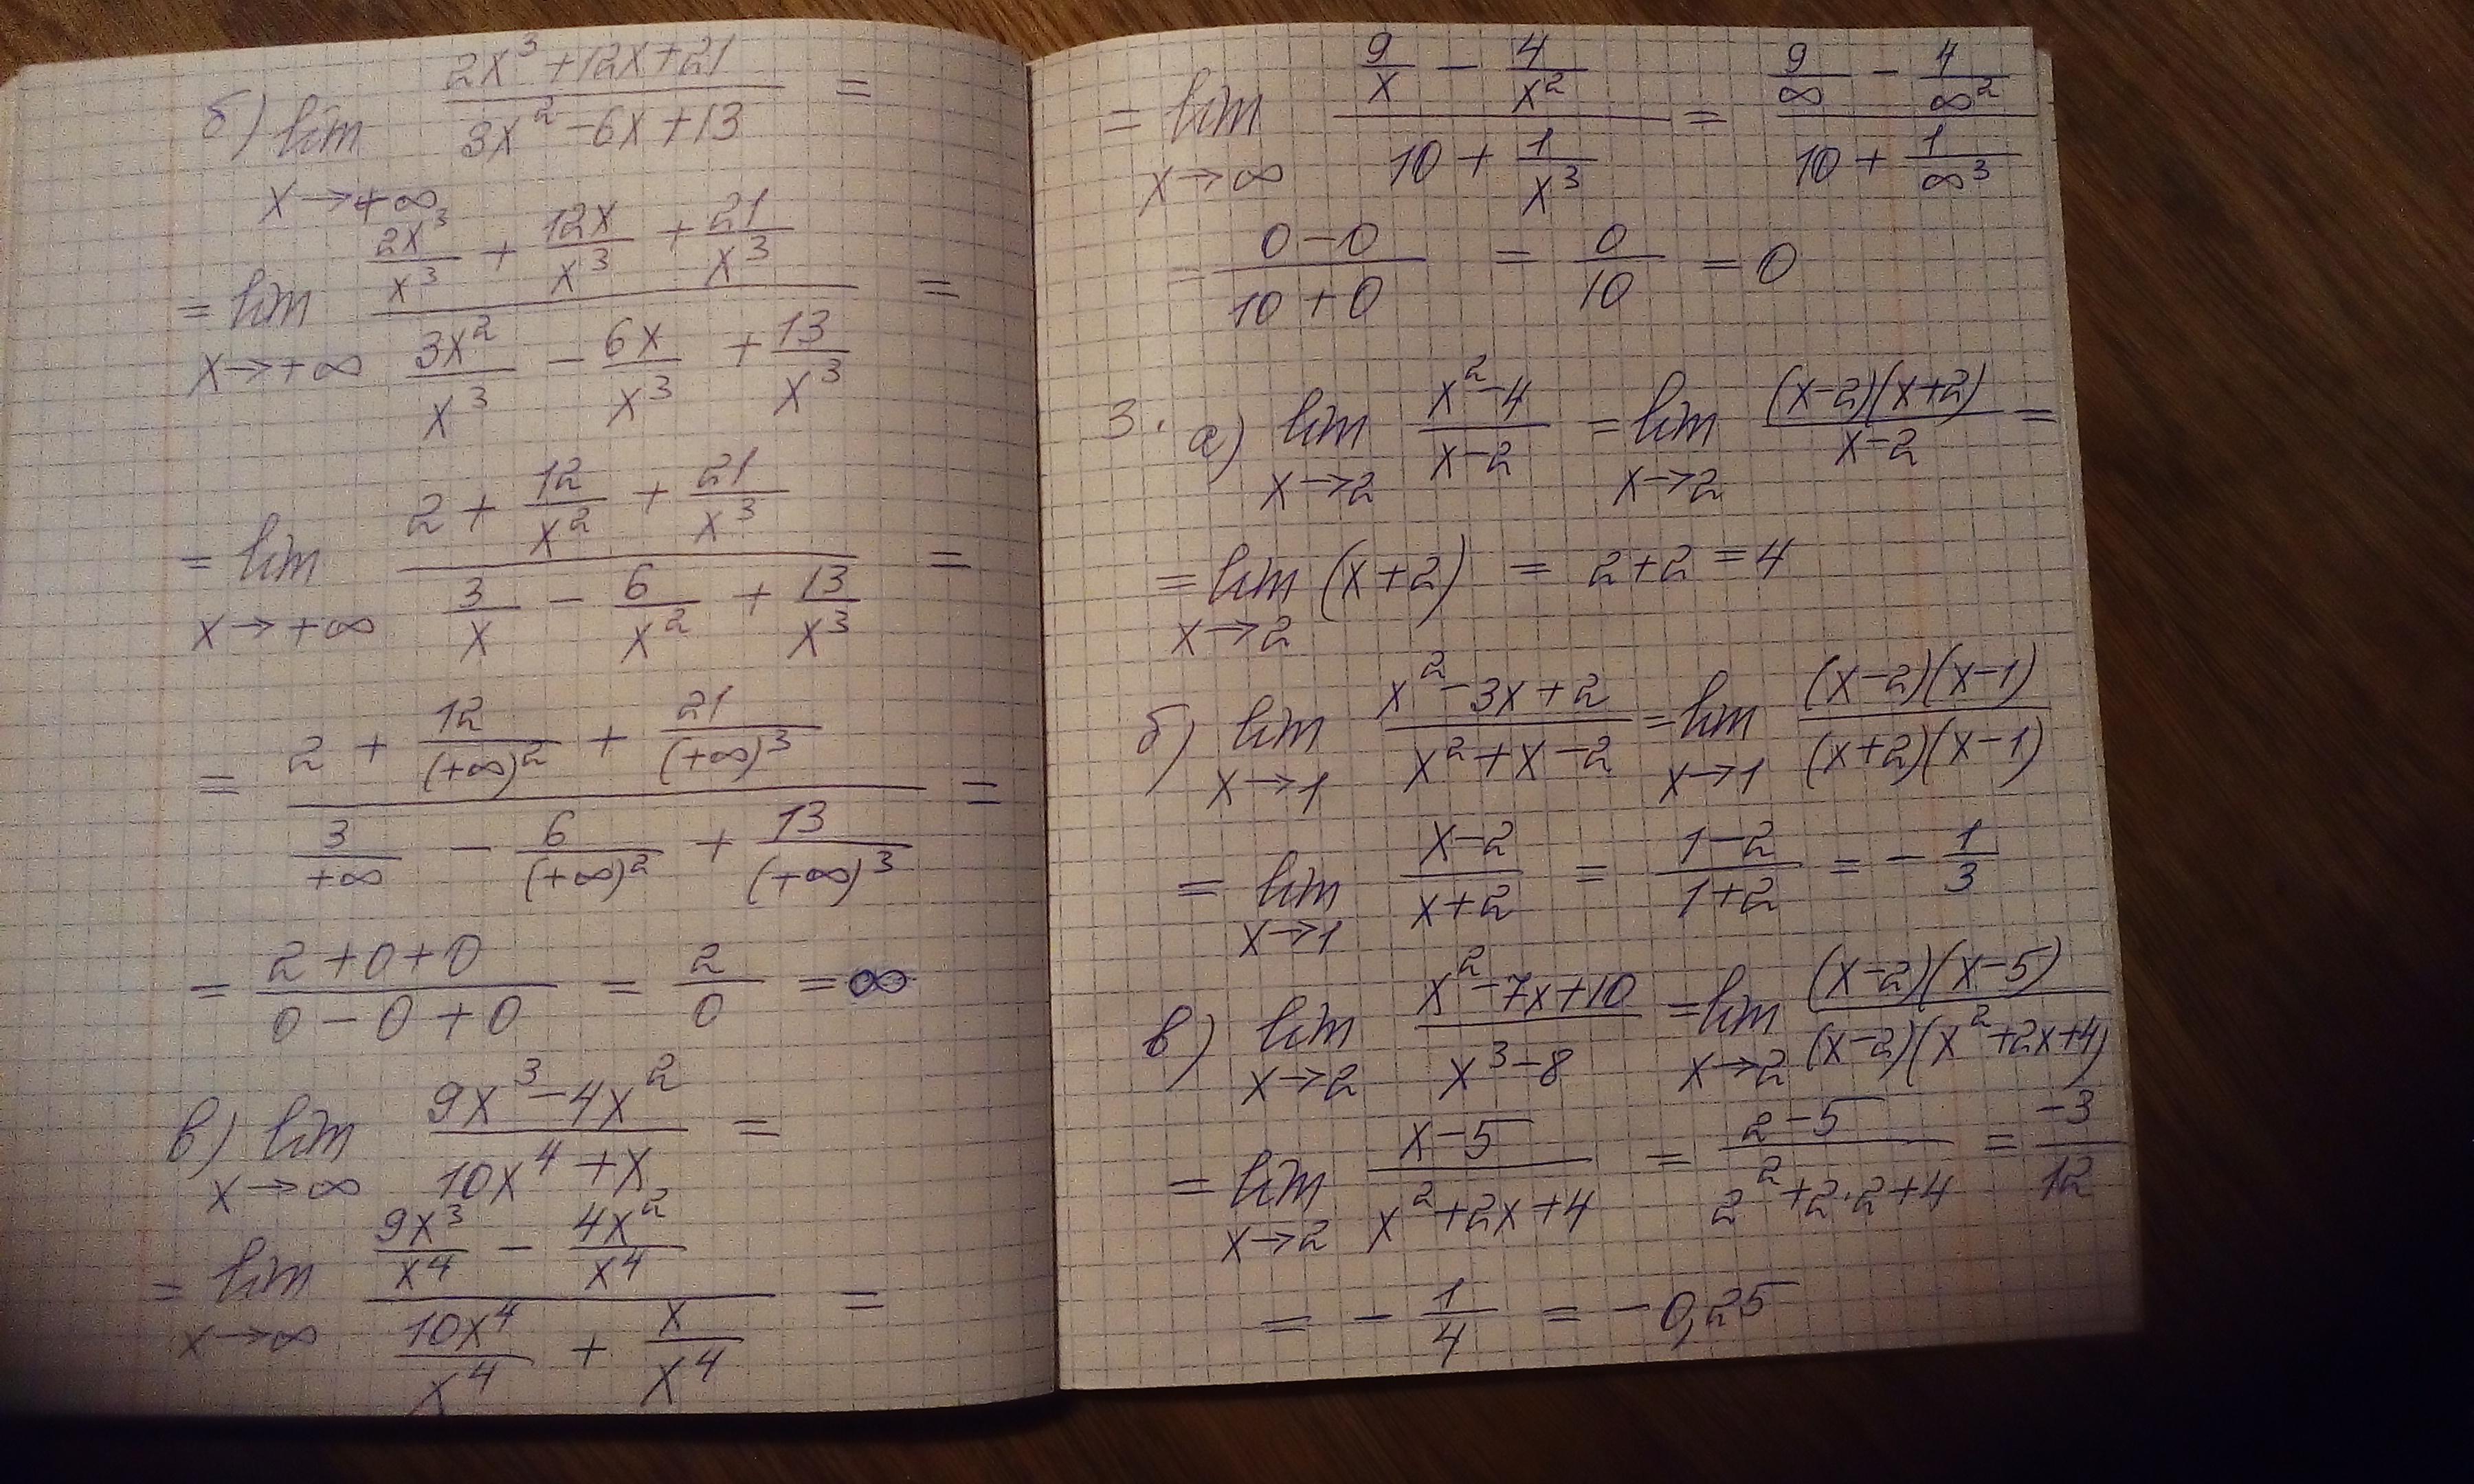 б) lim (2x³+12x+21)/(3x²-6x+13) =
x→+∞
= lim (2x³/x³ + 12x/x³ + 21/x³)/(3x²/x³ - 6x/x³ + 13/x³) =
x→+∞
= lim (2 + 12/x² + 21/x³)/(3/x - 6/x² + 13/x³) =
x→+∞
= (2 + 12/(+∞)² + 21/(+∞)³)/(3/+∞ - 6/(+∞)² + 13/(+∞)³) =
= (2+0+0)/(0-0+0) = 2/0 = ∞
в) lim (9x³-4x²)/(10x⁴+x) =
x→∞
= lim (9x³/x⁴ - 4x²/x⁴)/(10x⁴/x⁴ + x/x⁴) =
x→∞
= lim (9/x - 4/x²)/(10 + 1/x³) = (9/∞ - 4/∞²)/(10 + 1/∞³)
x→∞
= (0-0)/(10+0) = 0/10 = 0
3. а) lim (x²-4)/(x-2) = lim (x-2)(x+2)/(x-2) =
x→2 x→2
= lim (x+2) = 2+2 = 4
x→2
б) lim (x²-3x+2)/(x²+x-2) = lim (x-2)(x-1)/(x+2)(x-1)
x→1 x→1
= lim (x-2)/(x+2) = (1-2)/(1+2) = - 1/3
x→1
в) lim (x²-7x+10)/(x³-8) = lim (x-2)(x-5)/(x-2)(x²+2x+4)
x→2 x→2
= lim (x-5)/(x²+2x+4) = (2-5)/(2²+2·2+4) = -3/12
x→2
= - 1/4 = -0,25